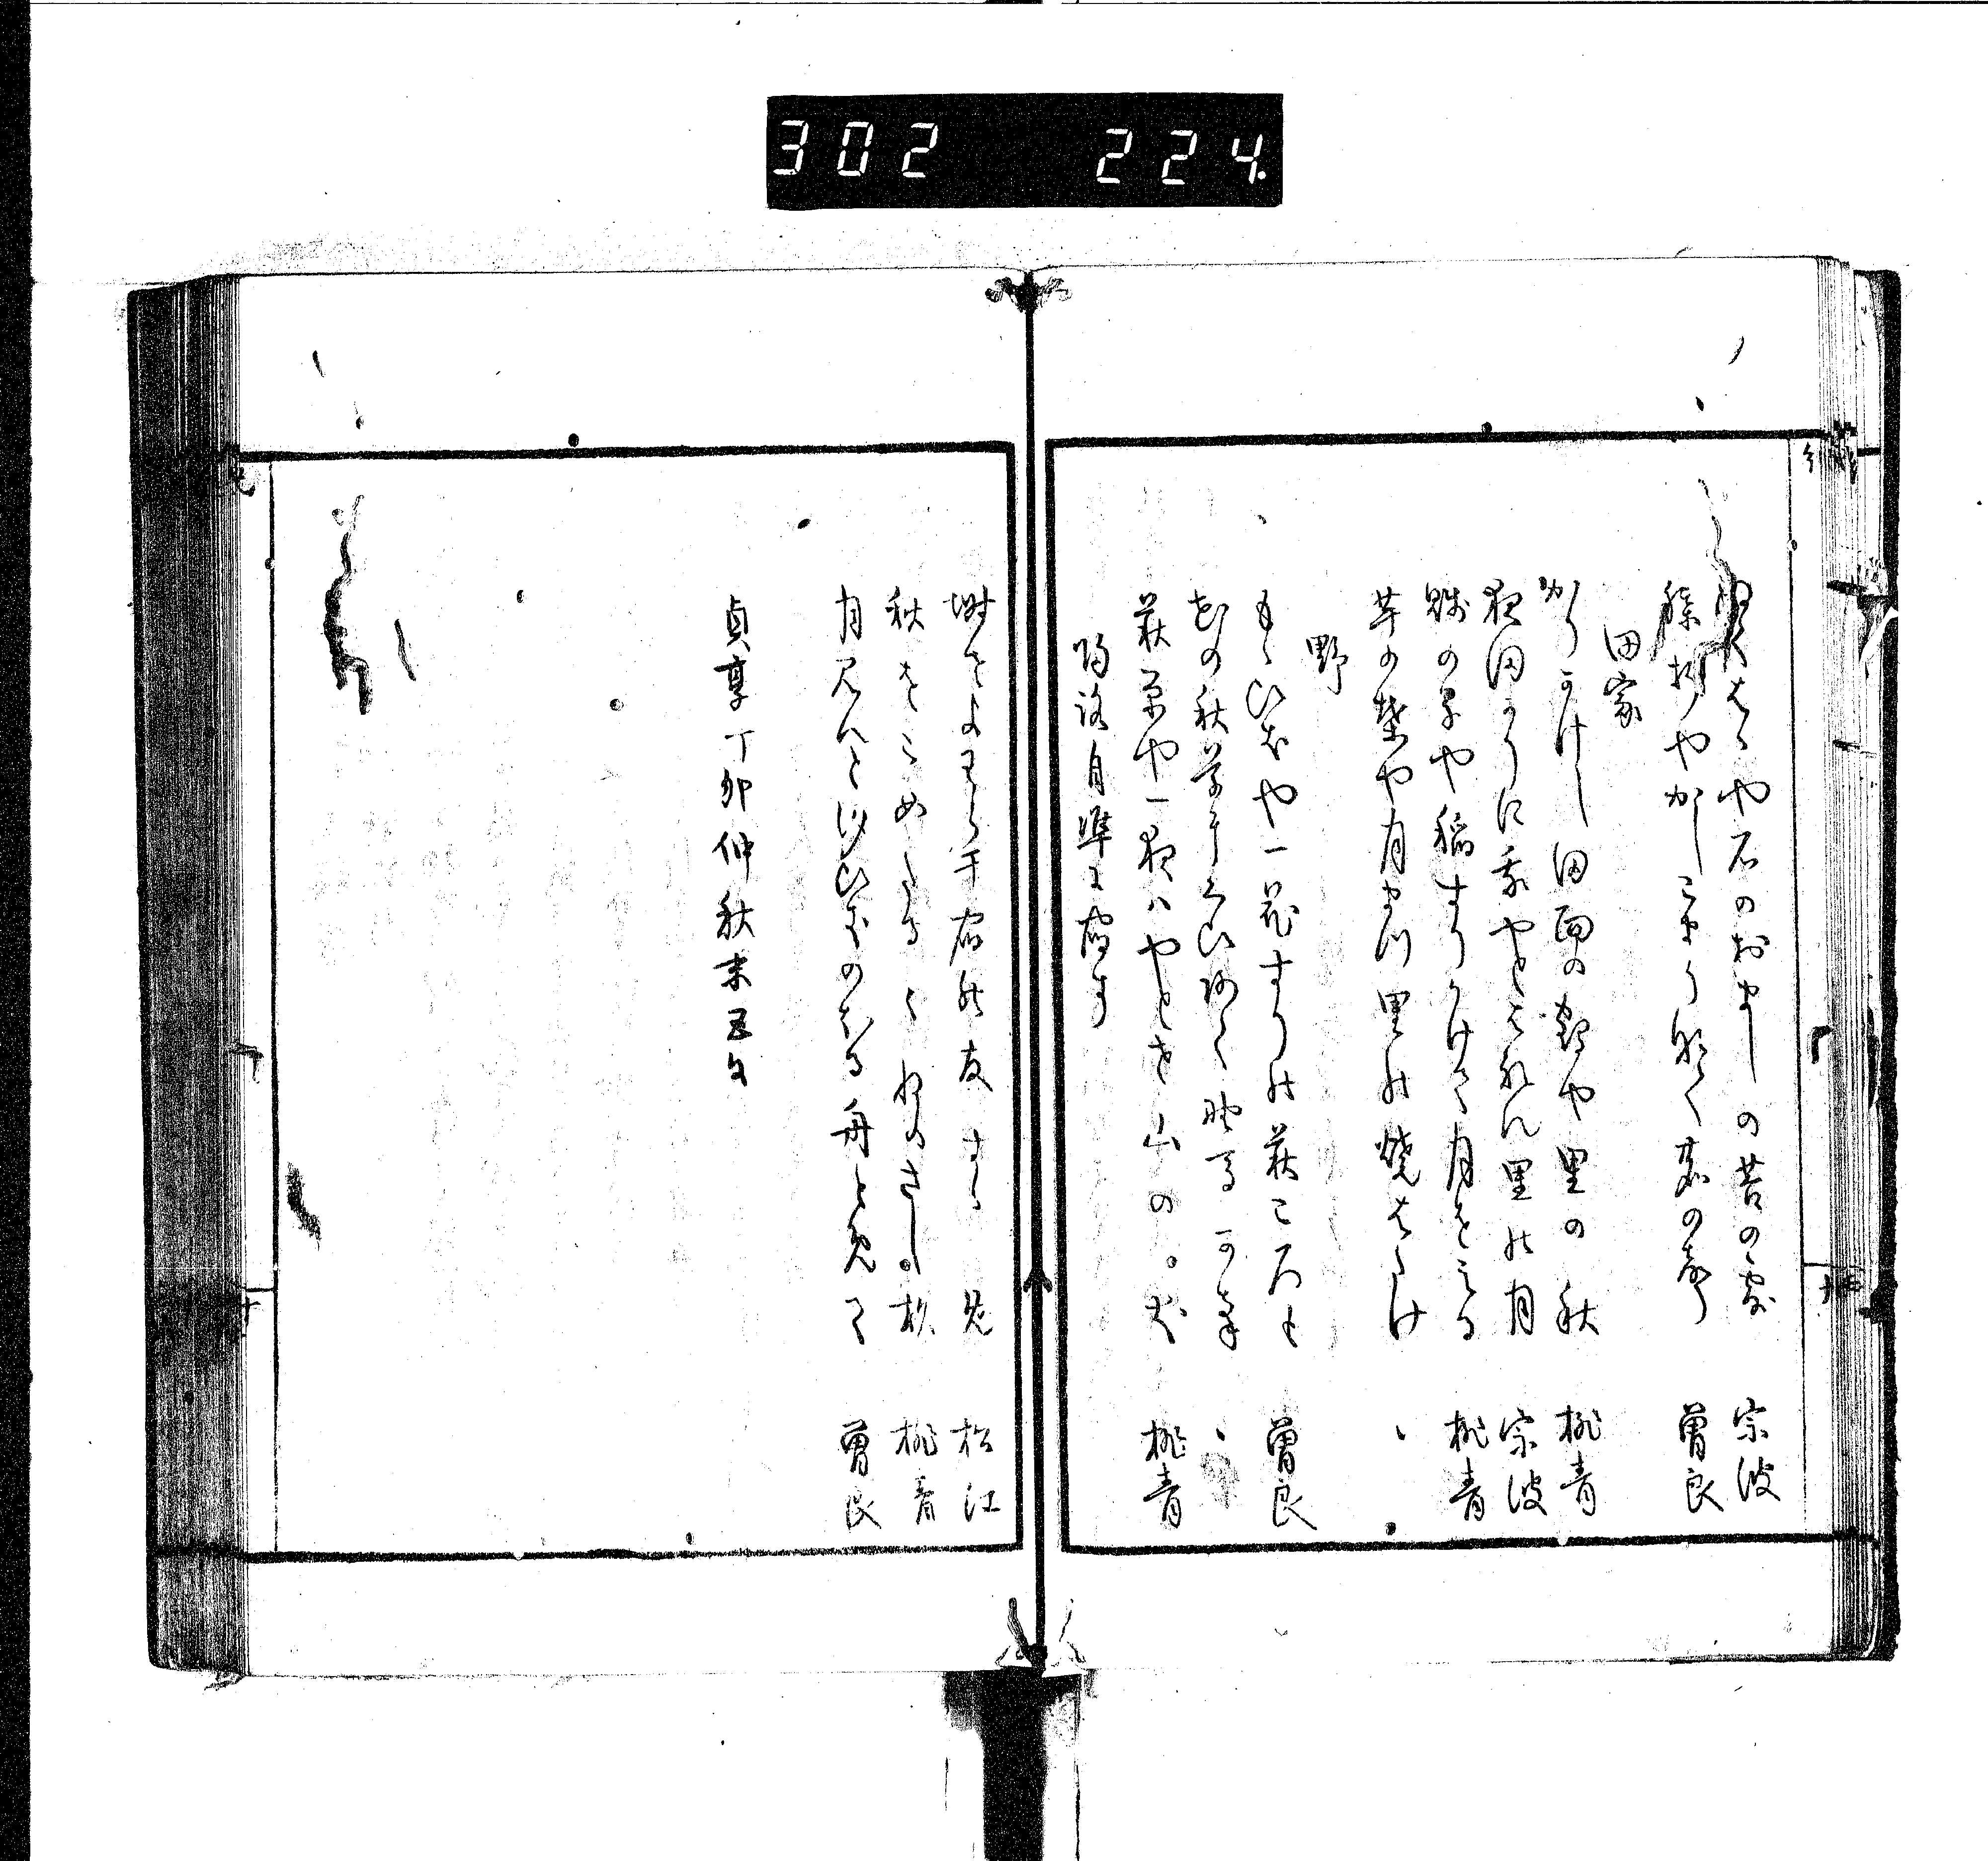 302 224.
ぬくはゝや石のおましの苔の露 宗波
膝折ルやかしこまり鳴く鹿の声 曽良
田家
かりかけし田面の靍や里の秋 桃青
夜田かりに我やとはれん里の月 宗波
賤の子や稲すりかけて月をみる 桃青
芋の葉や月まつ里の焼はたけ 、
野
もゝひきや一花すりの萩ころも 曽良
花の秋草にくひあく野馬可毛 、
萩原や一夜ハやとせ山の犬 桃青
帰路自準ニ宿ス
塒せよわら干宿の友すゝめ 松江
秋をこめたるくねのさし杉 桃青
月見んと汐ひきのほる舟とめて 曽良
貞享丁卯仲秋末五日